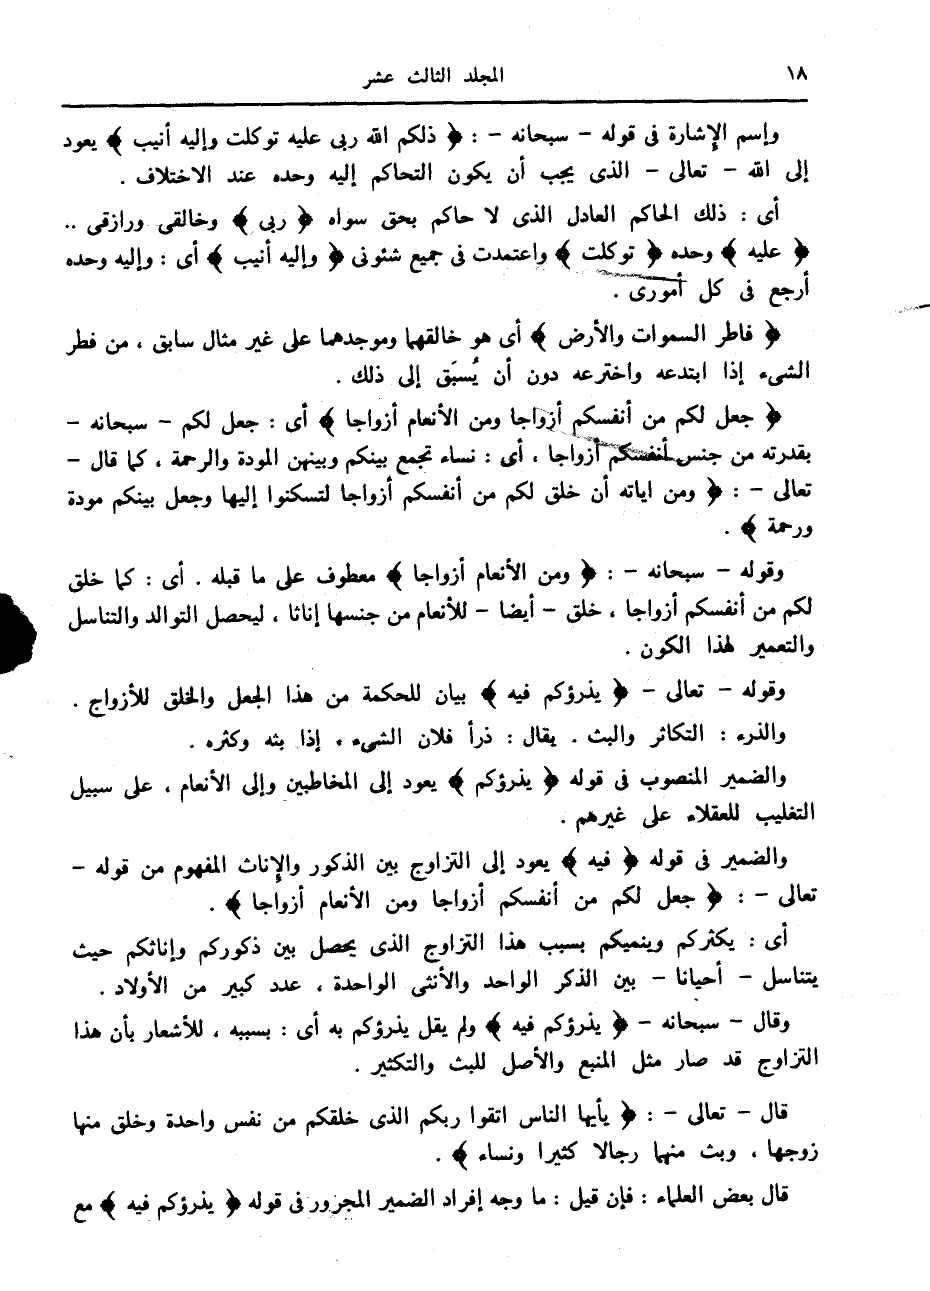 ١٨
المجلد الثالث عشر
وإسم الإشارة فى قوله - سبحانه - : ﴿ ذلكم الله ربى عليه توكلت وإليه أنيب ﴾ يعود
إلى الله - تعالى - الذى يجب أن يكون التحاكم إليه وحده عند الاختلاف .
أى : ذلك الحاكم العادل الذى لا حاكم بحق سواه ﴿ ربى ﴾ وخالقى ورازقى ..
﴿ عليه ﴾ وحده ﴿ توكلت ﴾ واعتمدت فى جميع شئونى ﴿ وإليه أنيب ﴾ أى : وإليه وحده
أرجع فى كل أمورى .
﴿ فاطر السموات والأرض ﴾ أى هو خالقهما وموجدهما على غير مثال سابق ، من فطر
الشىء إذا ابتدعه واخترعه دون أن يُسبَق إلى ذلك .
﴿ جعل لكم من أنفسكم أزواجا ومن الأنعام أزواجا ﴾ أى : جعل لكم - سبحانه -
بقدرته من جنس أنفسكم أزواجا ، أى : نساء تجمع بينكم وبينهن المودة والرحمة ، كما قال -
تعالى - : ﴿ ومن اياته أن خلق لكم من أنفسكم أزواجا لتسكنوا إليها وجعل بينكم مودة
ورحمة ﴾ .
وقوله - سبحانه - : ﴿ ومن الأنعام أزواجا ﴾ معطوف على ما قبله . أى : كما خلق
لكم من أنفسكم أزواجا ، خلق - أيضا - للأنعام من جنسها إناثا ، ليحصل التوالد والتناسل
والتعمير لهذا الكون .
وقوله - تعالى - ﴿ يذرؤكم فيه ﴾ بيان للحكمة من هذا الجعل والخلق للأزواج .
والذرء : التكاثر والبث . يقال : ذرأ فلان الشىء ، إذا بثه وكثره .
والضمير المنصوب فى قوله ﴿ يذرؤكم ﴾ يعود إلى المخاطبين وإلى الأنعام ، على سبيل
التغليب للعقلاء على غيرهم .
والضمير فى قوله ﴿ فيه ﴾ يعود إلى التزاوج بين الذكور والإناث المفهوم من قوله -
تعالى - : ﴿ جعل لكم من أنفسكم أزواجا ومن الأنعام أزواجا ﴾ .
أى : يكثركم وينميكم بسبب هذا التزاوج الذى يحصل بين ذكوركم وإناثكم حيث
يتناسل - أحيانا - بين الذكر الواحد والأنثى الواحدة ، عدد كبير من الأولاد .
وقال - سبحانه - ﴿ يذرؤكم فيه ﴾ ولم يقل يذرؤكم به أى : بسببه ، للأشعار بأن هذا
التزاوج قد صار مثل المنبع والأصل للبث والتكثير .
قال - تعالى - : ﴿ يأيها الناس اتقوا ربكم الذى خلقكم من نفس واحدة وخلق منها
زوجها ، وبث منهما رجالا كثيرا ونساء ﴾ .
قال بعض العلماء : فإن قيل : ما وجه إفراد الضمير المجرور فى قوله ﴿ يذرؤكم فيه ﴾ مع